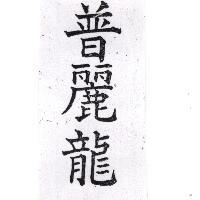 普麗龍